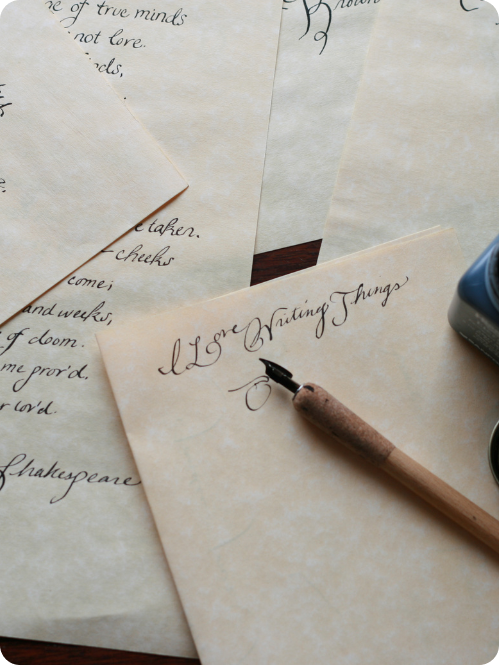 of true minds
not love.
taken.
cheeks
come;
and weeks,
of doom.
me prov'd.
lov'd.
Shakespeare
I Love Writing Things